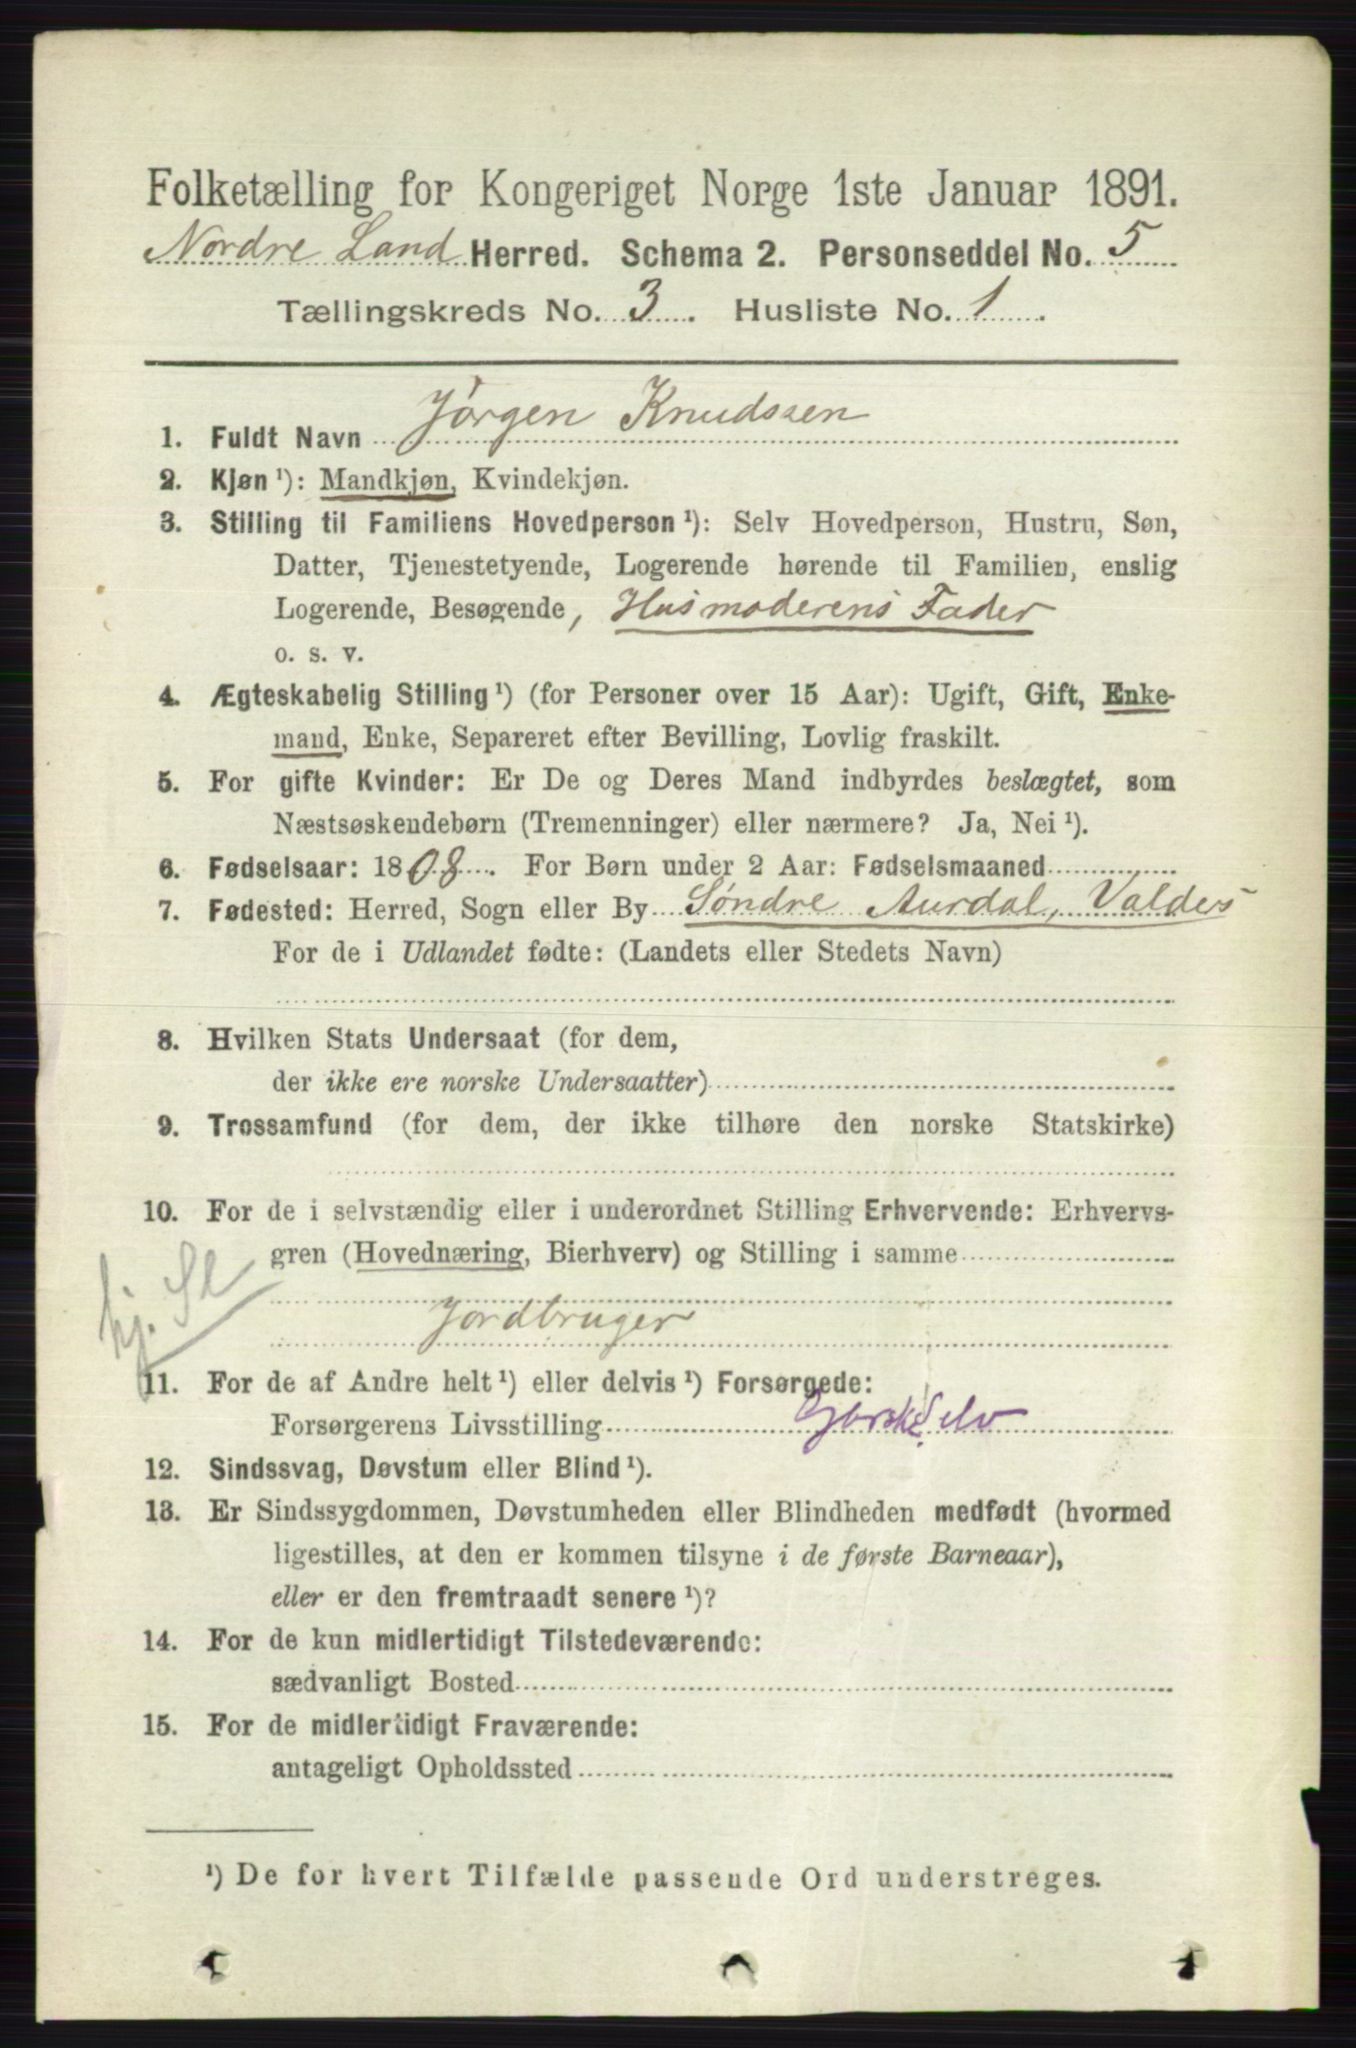 Folketælling for Kongeriget Norge 1ste Januar 1891.
Nordre Land Herred. Schema 2. Personseddel No. 5
Tællingskreds No. 3. Husliste No. 1.
1. Fuldt Navn Jörgen Knudssen
2. Kjøn ¹): Mandkjøn, Kvindekjøn.
3. Stilling til Familiens Hovedperson ¹): Selv Hovedperson, Hustru, Søn,
Datter, Tjenestetyende, Logerende hørende til Familien, enslig
Logerende, Besøgende, Husmoderens Fader
o. s. v.
4. Ægteskabelig Stilling ¹) (for Personer over 15 Aar): Ugift, Gift, Enke-
mand, Enke, Separeret efter Bevilling, Lovlig fraskilt.
5. For gifte Kvinder: Er De og Deres Mand indbyrdes beslægtet, som
Næstsøskendebørn (Tremenninger) eller nærmere? Ja, Nei ¹).
6. Fødselsaar: 1808. For Børn under 2 Aar: Fødselsmaaned
7. Fødested: Herred, Sogn eller By Söndre Aurdal, Valders
For de i Udlandet fødte: (Landets eller Stedets Navn)
8. Hvilken Stats Undersaat (for dem,
der ikke ere norske Undersaatter)
9. Trossamfund (for dem, der ikke tilhøre den norske Statskirke)
10. For de i selvstændig eller i underordnet Stilling Erhvervende: Erhvervs-
gren (Hovednæring, Bierhverv) og Stilling i samme
Jordbruger
11. For de af Andre helt ¹) eller delvis ¹) Forsørgede:
Forsørgerens Livsstilling
12. Sindssvag, Døvstum eller Blind ¹).
13. Er Sindssygdommen, Døvstumheden eller Blindheden medfødt (hvormed
ligestilles, at den er kommen tilsyne i de første Barneaar),
eller er den fremtraadt senere ¹)?
14. For de kun midlertidigt Tilstedeværende:
sædvanligt Bosted
15. For de midlertidigt Fraværende:
antageligt Opholdssted
¹) De for hvert Tilfælde passende Ord understreges.